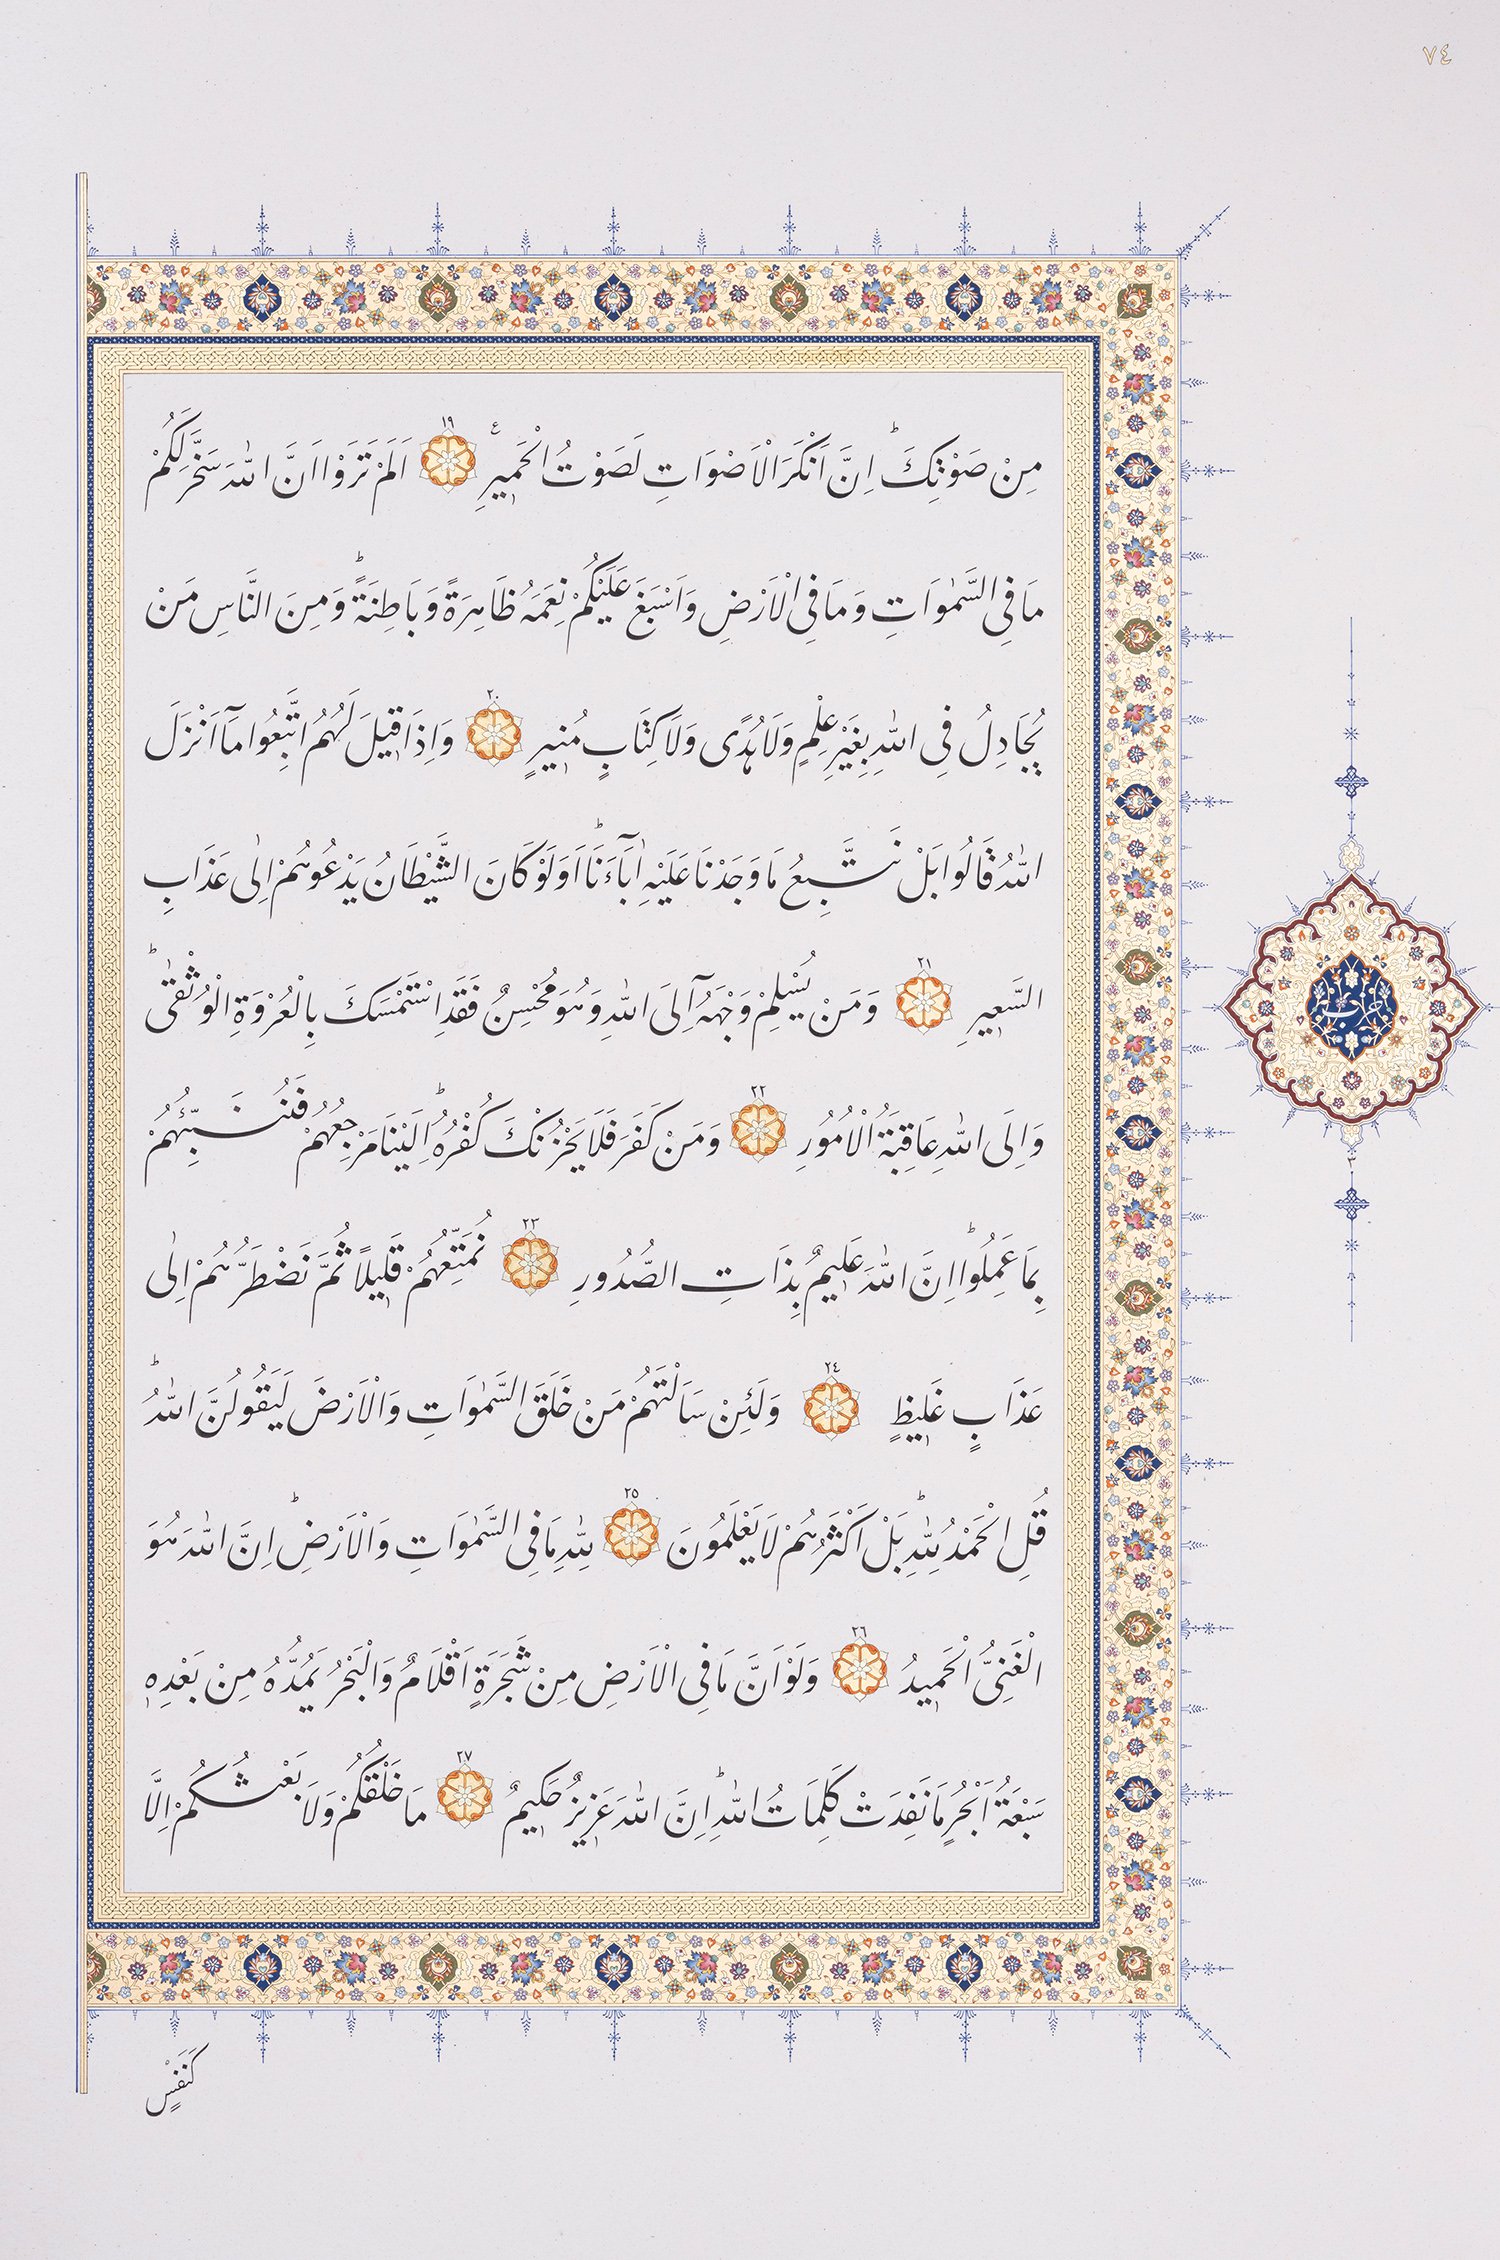 ٧٤
مِنْ صَوْتِكَۜ اِنَّ اَنْكَرَ الْاَصْوَاتِ لَصَوْتُ الْحَمِيرِ ١٩ اَلَمْ تَرَوْا اَنَّ اللّٰهَ سَخَّرَ لَكُمْ
مَا فِى السَّمٰوَاتِ وَمَا فِى الْاَرْضِ وَاَسْبَغَ عَلَيْكُمْ نِعَمَهُ ظَاهِرَةً وَبَاطِنَةًۜ وَمِنَ النَّاسِ مَنْ
يُجَادِلُ فِى اللّٰهِ بِغَيْرِ عِلْمٍ وَلَا هُدًى وَلَا كِتَابٍ مُنِيرٍ ٢٠ وَاِذَا قِيلَ لَهُمُ اتَّبِعُوا مَٓا اَنْزَلَ
اللّٰهُ قَالُوا بَلْ نَتَّبِعُ مَا وَجَدْنَا عَلَيْهِ اٰبَٓاءَنَاۜ اَوَلَوْ كَانَ الشَّيْطَانُ يَدْعُوهُمْ اِلٰى عَذَابِ
السَّعِيرِ ٢١ وَمَنْ يُسْلِمْ وَجْهَهُٓ اِلَى اللّٰهِ وَهُوَ مُحْسِنٌ فَقَدِ اسْتَمْسَكَ بِالْعُرْوَةِ الْوُثْقٰىۜ
وَاِلَى اللّٰهِ عَاقِبَةُ الْاُمُورِ ٢٢ وَمَنْ كَفَرَ فَلَا يَحْزُنْكَ كُفْرُهُۜ اِلَيْنَا مَرْجِعُهُمْ فَنُنَبِّئُهُمْ
بِمَا عَمِلُواۜ اِنَّ اللّٰهَ عَلِيمٌ بِذَاتِ الصُّدُورِ ٢٣ نُمَتِّعُهُمْ قَلِيلًا ثُمَّ نَضْطَرُّهُمْ اِلٰى
عَذَابٍ غَلِيظٍ ٢٤ وَلَئِنْ سَاَلْتَهُمْ مَنْ خَلَقَ السَّمٰوَاتِ وَالْاَرْضَ لَيَقُولُنَّ اللّٰهُۜ
قُلِ الْحَمْدُ لِلّٰهِۜ بَلْ اَكْثَرُهُمْ لَا يَعْلَمُونَ ٢٥ لِلّٰهِ مَا فِى السَّمٰوَاتِ وَالْاَرْضِۜ اِنَّ اللّٰهَ هُوَ
الْغَنِىُّ الْحَمِيدُ ٢٦ وَلَوْ اَنَّ مَا فِى الْاَرْضِ مِنْ شَجَرَةٍ اَقْلَامٌ وَالْبَحْرُ يَمُدُّهُ مِنْ بَعْدِهِ
سَبْعَةُ اَبْحُرٍ مَا نَفِدَتْ كَلِمَاتُ اللّٰهِۜ اِنَّ اللّٰهَ عَزِيزٌ حَكِيمٌ ٢٧ مَا خَلْقُكُمْ وَلَا بَعْثُكُمْ اِلَّا
كَنَفْسٍ